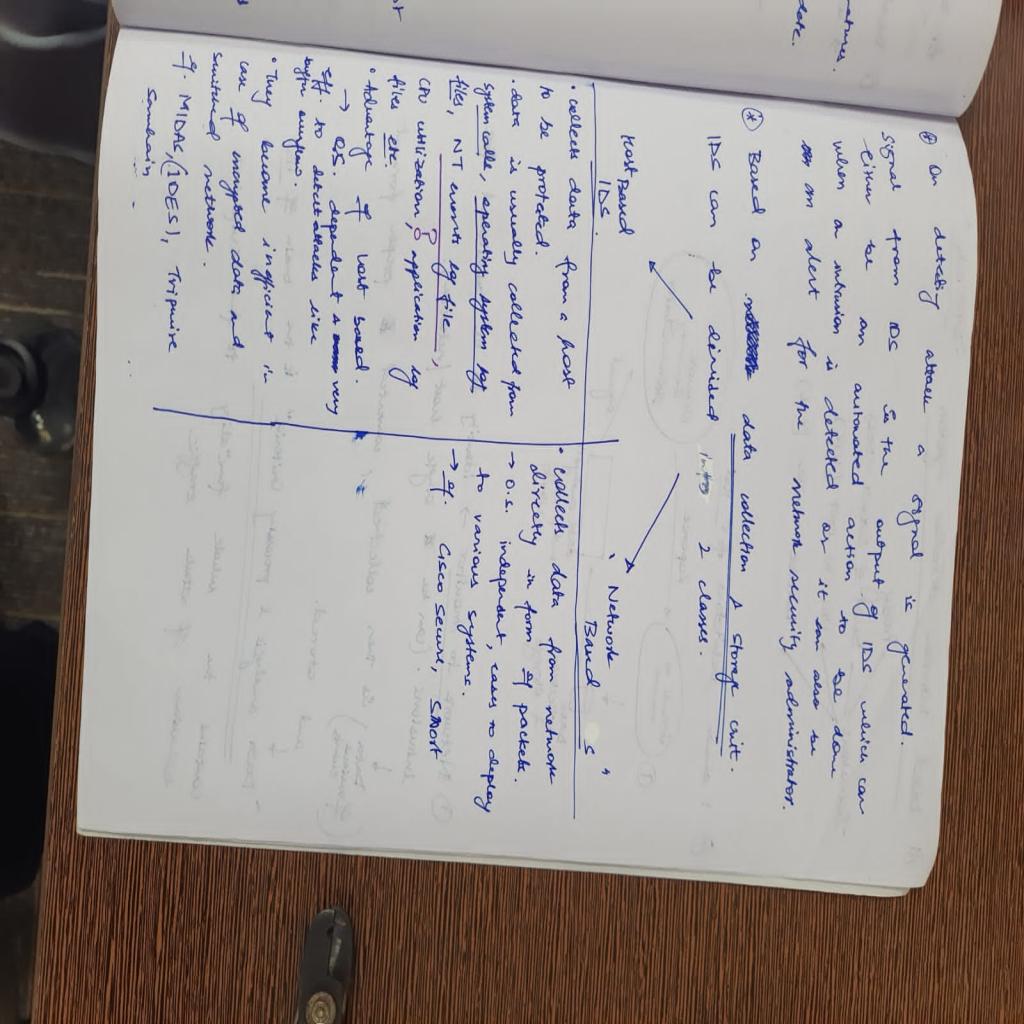 atures.
date.
st
* On detecting attack a signal is generated.
signal from IDS is the output of IDS which can
either be an automated action to be done
when an intrusion is detected or it can also be
an alert for the network security administrator.
* Based on data collection & storage unit.
IDS can be divided into 2 classes.
Host Based
IDS.
• collects data from a host
to be protected.
• data is usually collected from
system calls, operating system log
files, NT events log file,
CPU utilization, application log
files etc.
• Advantage of host based.
→ OS. dependent & very
eff. to detect attacks like
buffer overflow.
• They become inefficient in
case of encrypted data and
switched network.
eg. MIDAS/(IDES), Tripwire
Samhain
Network
Based
• collects data from network
directly in form of packets.
→ O.S. independent, easy to deploy
to various systems.
→ eg. Cisco secure, SNort